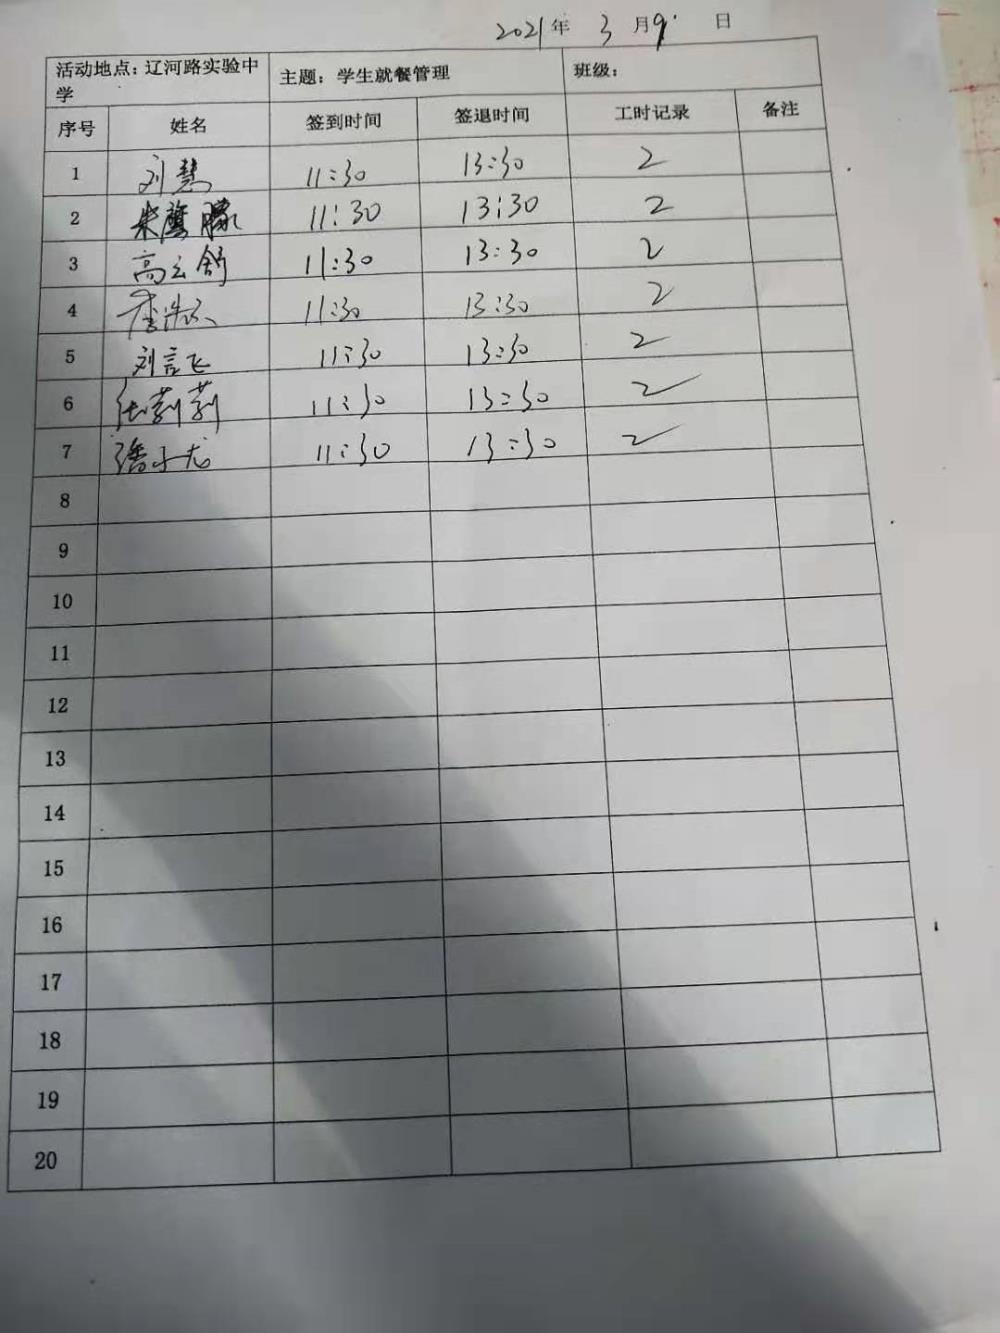 2021年 3 月 9 日
活动地点：辽河路实验中学 主题：学生就餐管理 班级：
序号 姓名 签到时间 签退时间 工时记录 备注
1 刘慧 11:30 13:30 2
2 朱鹰朦 11:30 13:30 2
3 高云舒 11:30 13:30 2
4 11:30 13:30 2
5 刘言飞 11:30 13:30 2
6 张莉莉 11:30 13:30 2
7 潘子龙 11:30 13:30 2
8
9
10
11
12
13
14
15
16
17
18
19
20